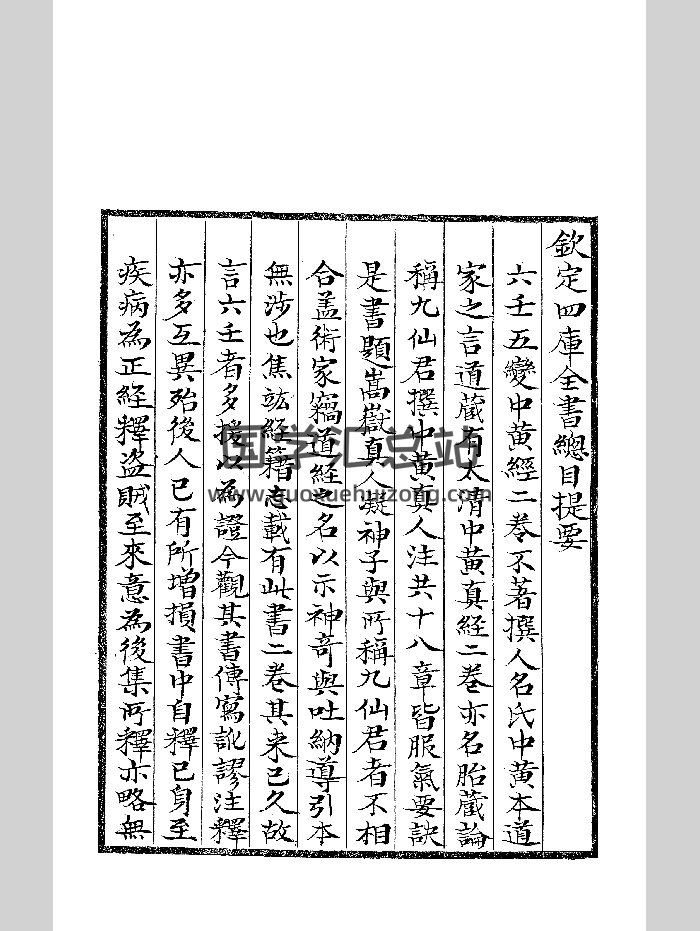 欽定四庫全書總目提要
六壬五變中黄經二卷不著撰人名氏中黄本道
家之言道藏有太清中黄真經二卷亦名胎藏論
稱九仙君撰中黄真人注共十八章皆服氣要訣
是書題嵩嶽真人凝神子與所稱九仙君者不相
合盖術家竊道經之名以示神竒與吐納導引本
無涉也焦竑經籍志載有此書二卷其来已久故
言六壬者多援以為證今觀其書傳寫訛謬注釋
亦多互異殆後人已有所增損書中自釋已身至
疾病為正經釋盗賊至來意為後集所釋亦略無
国学汇总站
www.guoxuehuizong.com